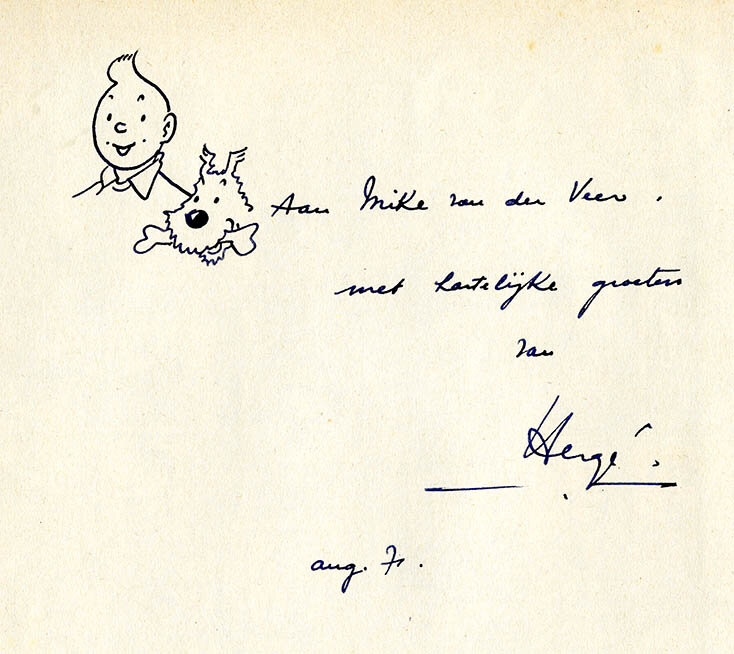 Aan Mike van der Veer.
met hartelijke groeten
van
Hergé.
aug. 71.